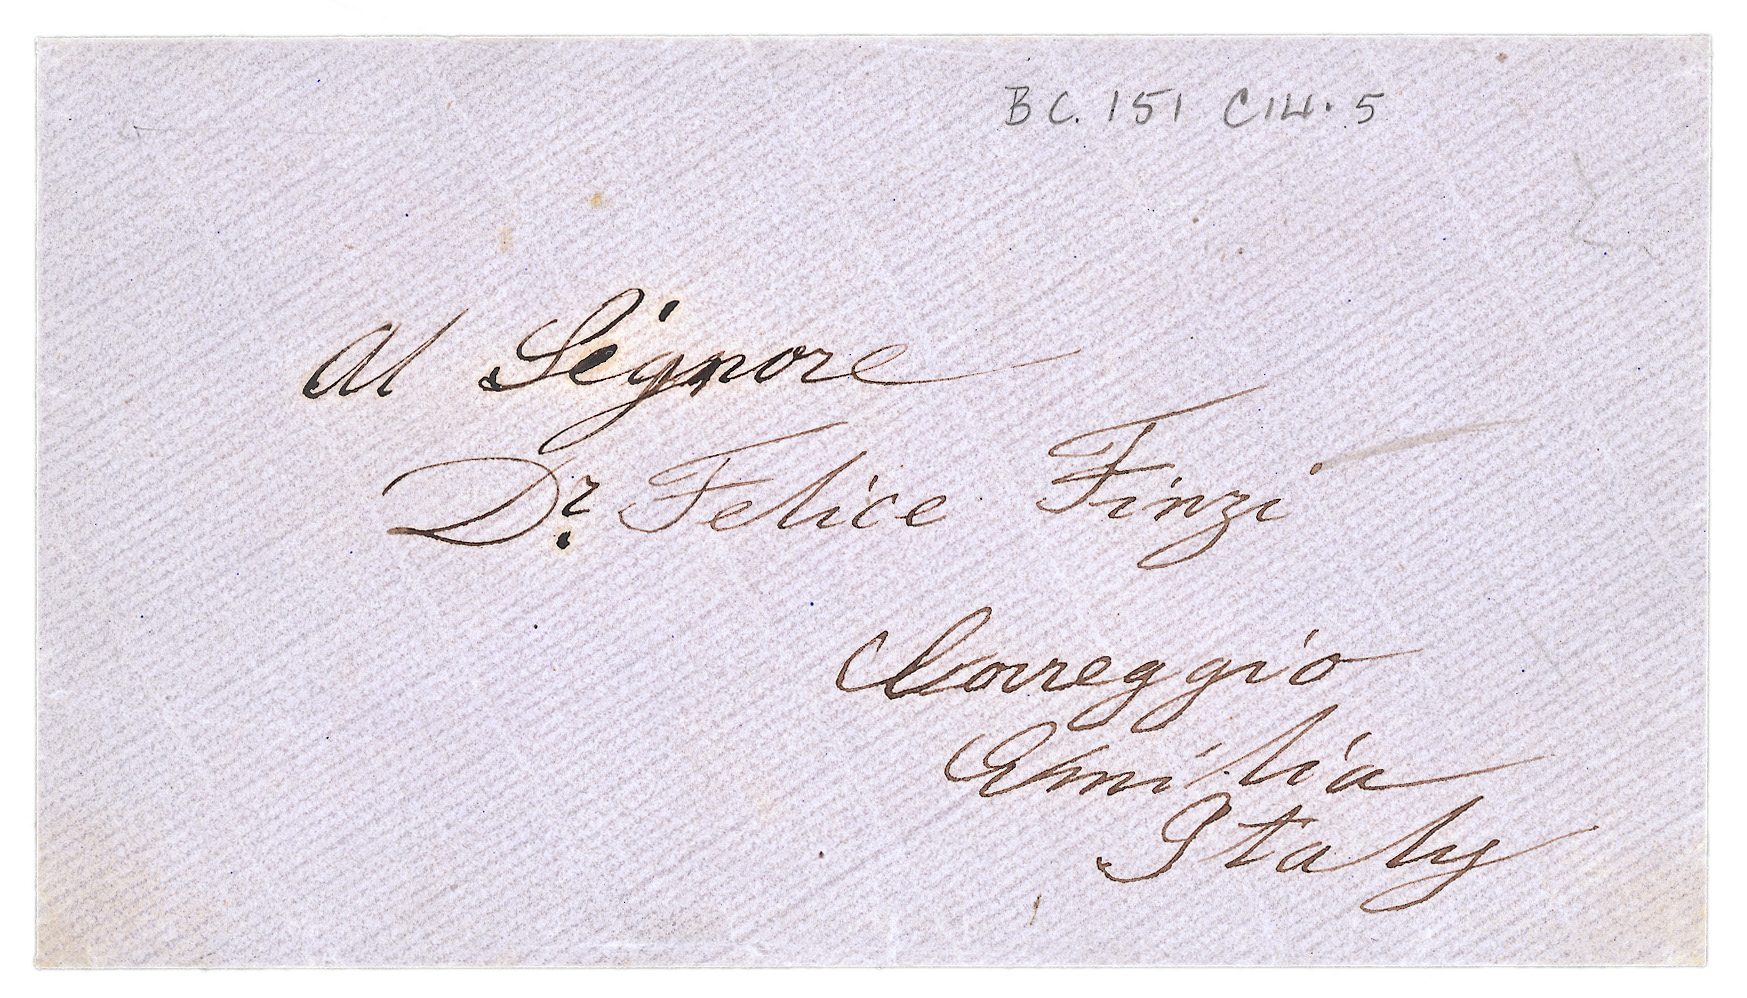 BC. 151 C14.5
Al Signore
Dr. Felice Finzi
Correggio
Emilia
Italy